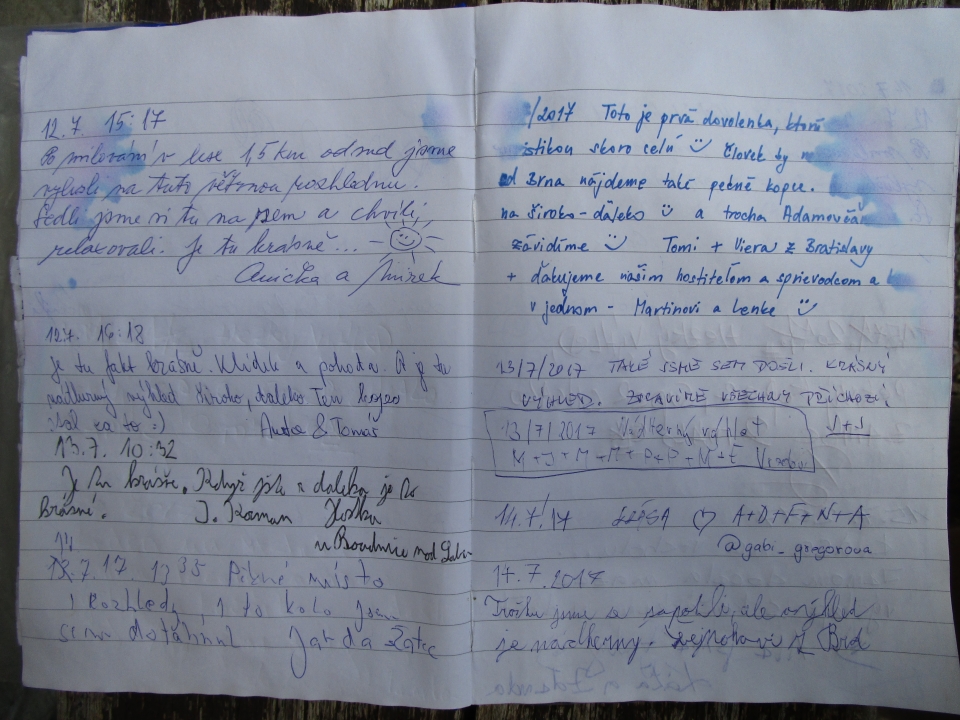 12.7. 15:17
Po milování v lese 1,5 km odsud jsme
vylezli na tuto větrnou rozhlednu.
Sedli jsme si tu na zem a chvíli
relaxovali. Je tu krásně...
Anička a Mirek
12.7. 16:18
Je tu fakt krásně. Klídek a pohoda. A je tu
nádherný výhled široko, daleko. Ten kopec
stál za to :)
& Tomáš
13.7. 10:32
Je tu krásně. Když jste z daleka je to
krásné. J. Roman
u Roudnice nod
14.7.17. 13 35 Pěkné místo
i Rozhledy, i to kolo jsme
sem dotáhnul Jarda Žatec
/2017 Toto je prvá dovolenka, ktorá
istikou skoro celú človek by
od Brna nájdeme také pekné kopce.
na široko-ďaleko a trocha Adamovčan
závidíme Tomi + Viera z Bratislavy
+ ďakujeme našim hostiteľom a sprievodcom a
v jednom - Martinovi a Lenke
13/7/2017 TAKÉ JSME SEM DOŠLI. KRÁSNÝ
VÝHLED. ZDRAVÍME VŠECHNY PŘÍCHOZÍ
J+J
13/7/2017 výhled
M+J+M+M+P+P+M+E
14.7.'17 A+D+F+N+A
@gabi_gregorova
17.7.2017
Trošku jsme se zapotili, ale výhled
je nádherný. z Brd